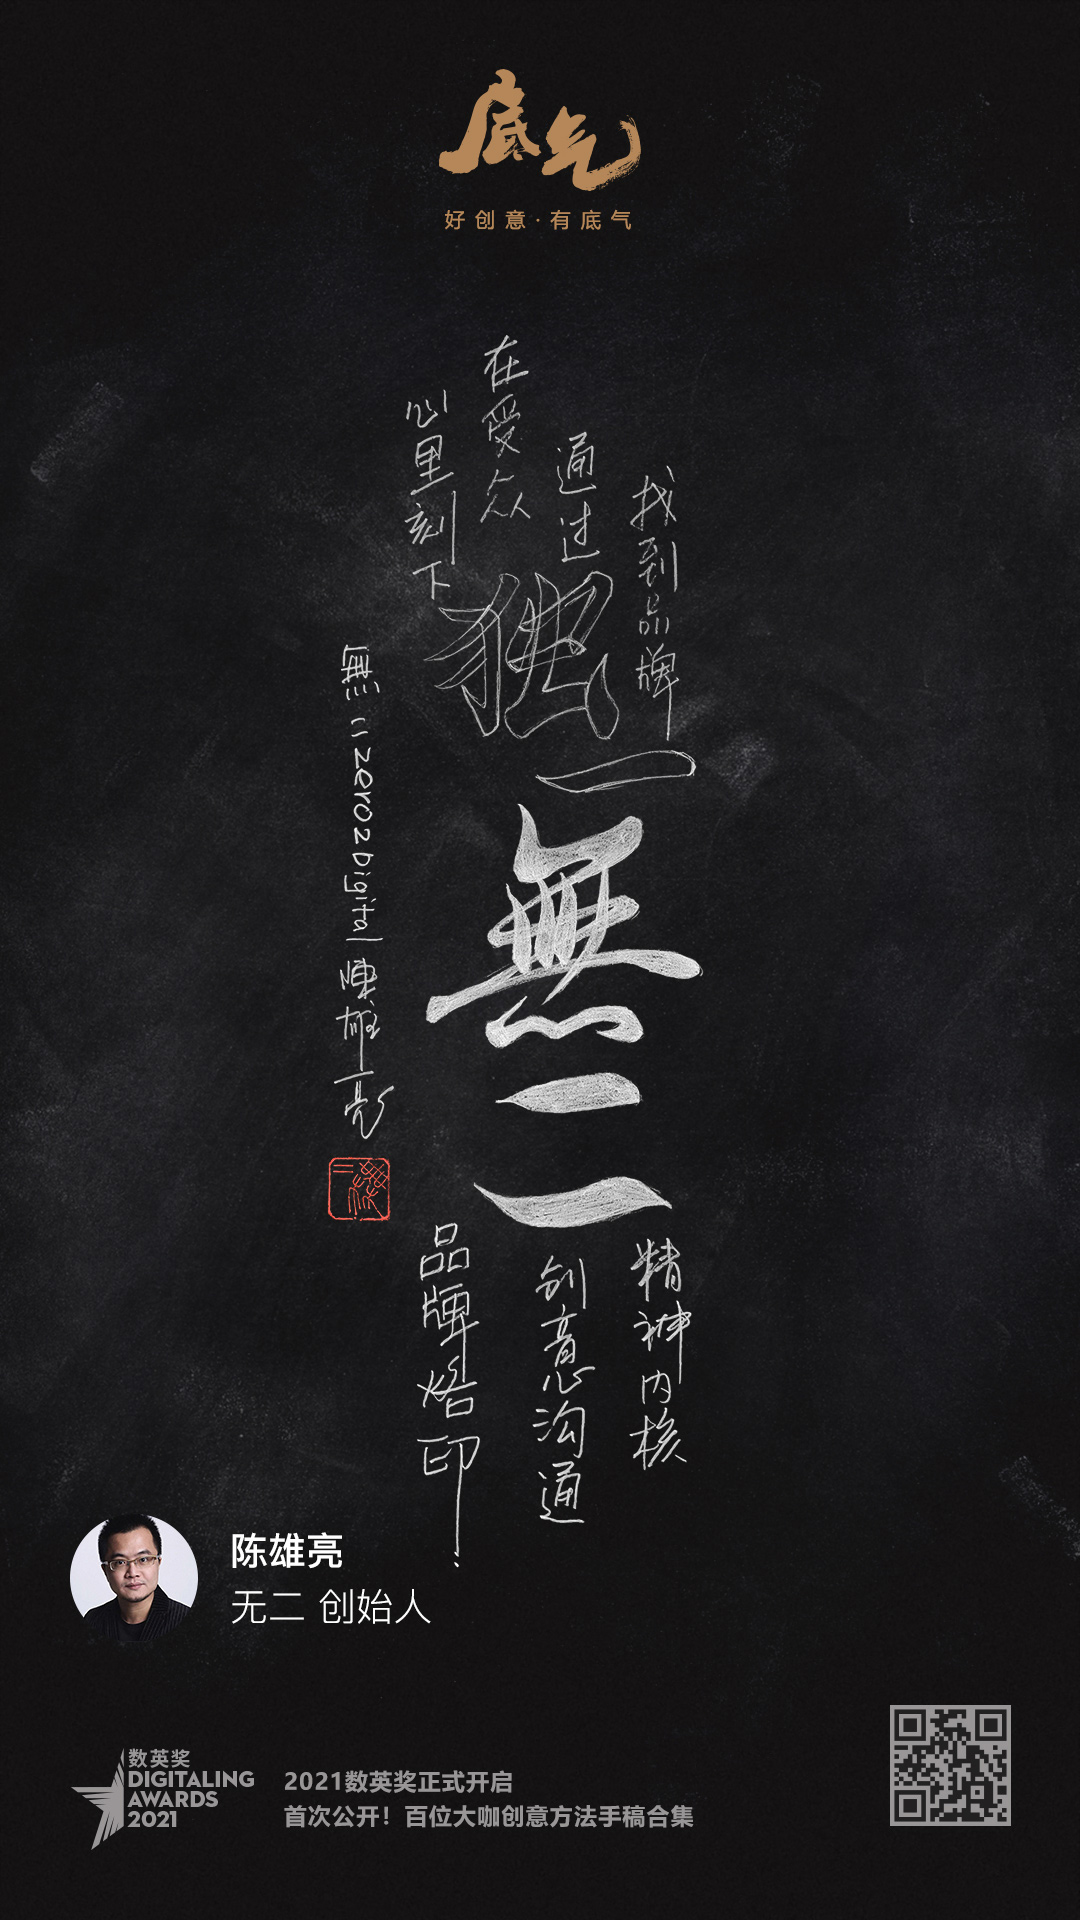 底气
好创意·有底气
找到品牌
通过
在受众
心里刻下
独一
無二
精神内核
创意沟通
品牌烙印
無二zero2Digital陳雄亮
無二
陈雄亮
无二 创始人
数英奖
DIGITALING
AWARDS
2021
2021数英奖正式开启
首次公开！百位大咖创意方法手稿合集